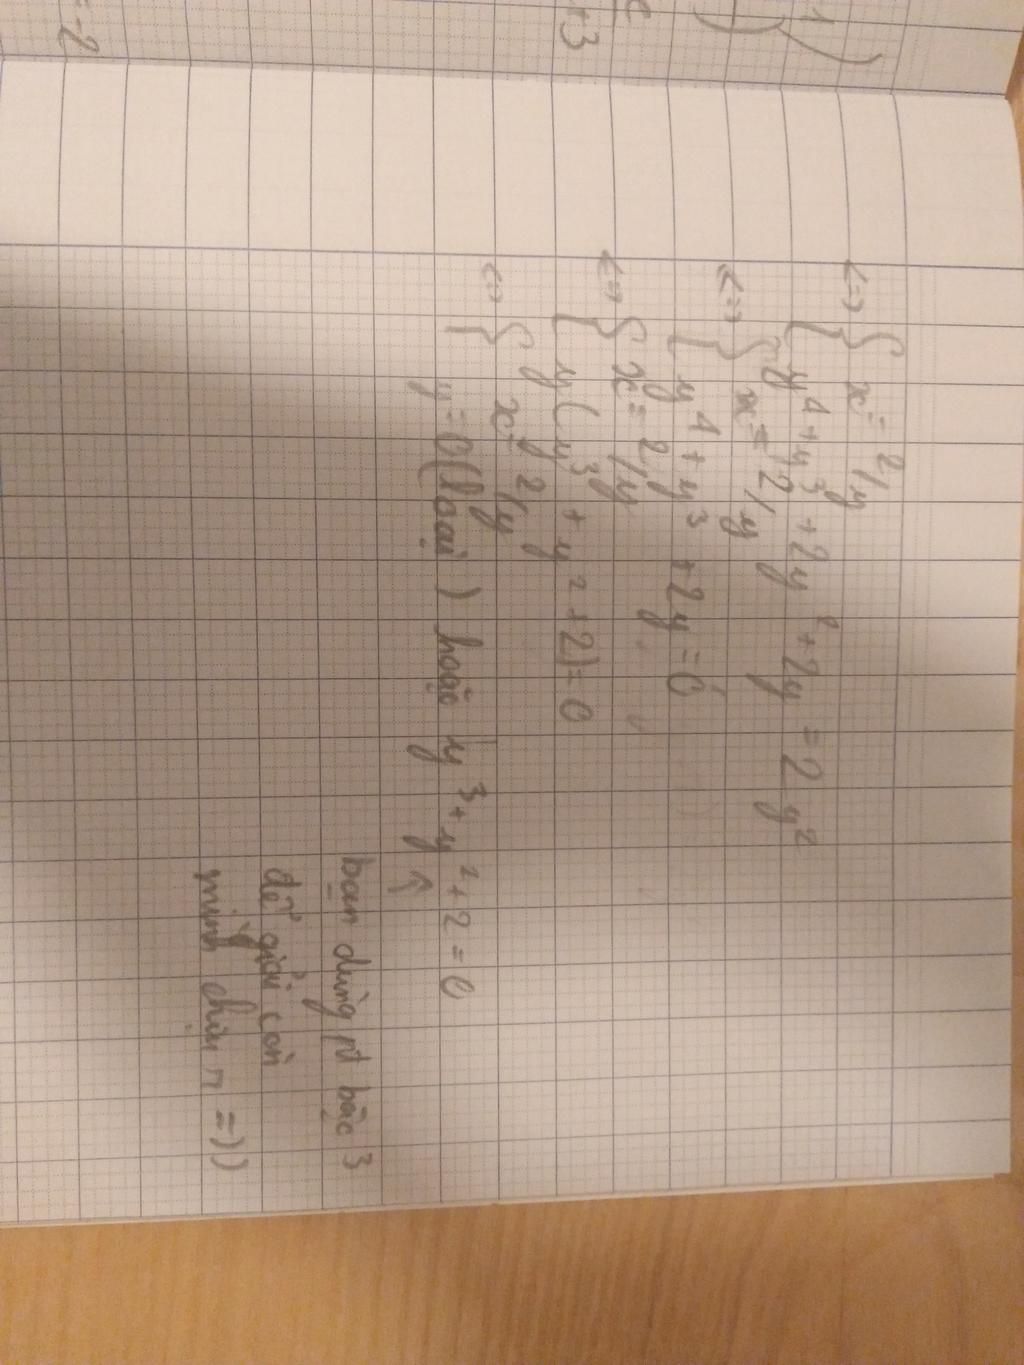 1
+3
= -2
<=> { x = 2/y
y⁴ + y³ + 2y² + 2y = 2y²
<=> { x = 2/y
y⁴ + y³ + 2y = 0
<=> { x = 2/y
y(y³ + y² + 2) = 0
<=> { x = 2/y
y = 0 (loại) hoặc y³ + y² + 2 = 0
↑
bạn dùng pt bậc 3
để giải còn
mình chịu =))